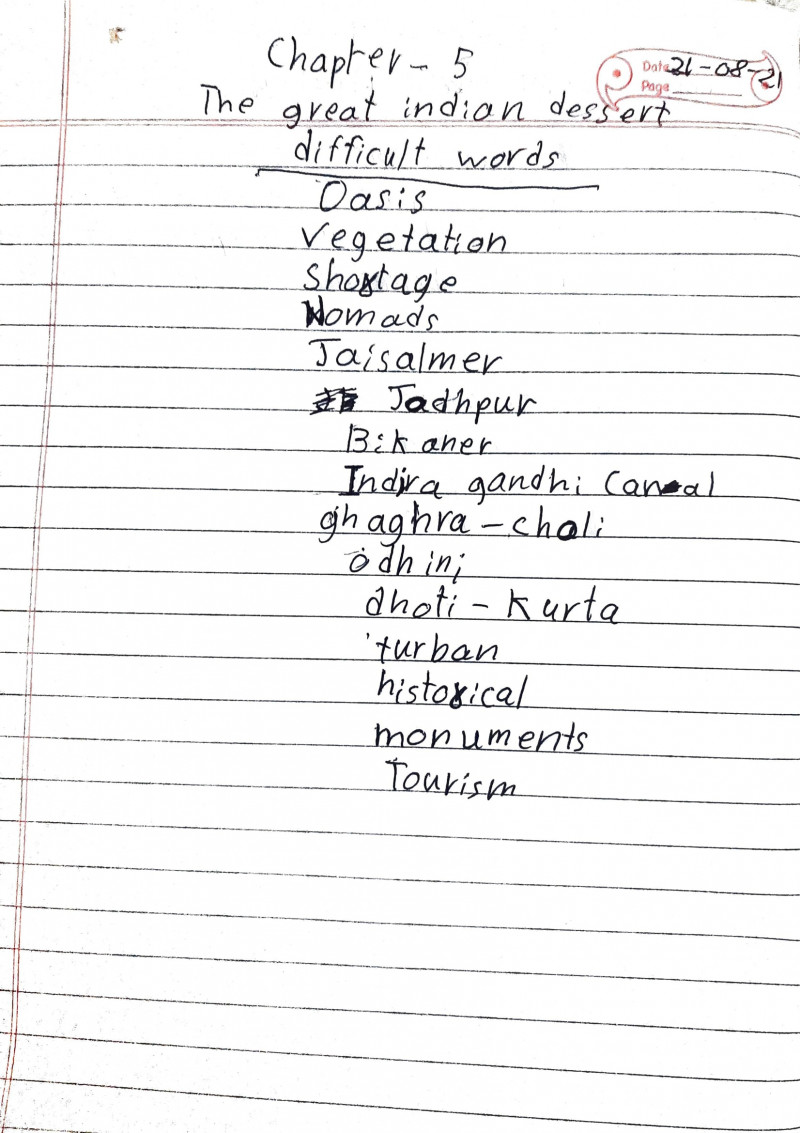 Chapter - 5
Date 21-08-21
Page
The great indian dessert
difficult words
Oasis
Vegetation
Shortage
Nomads
Jaisalmer
Jadhpur
Bikaner
Indira gandhi Canal
ghaghra - choli
odhini
dhoti - Kurta
turban
historical
monuments
Tourism